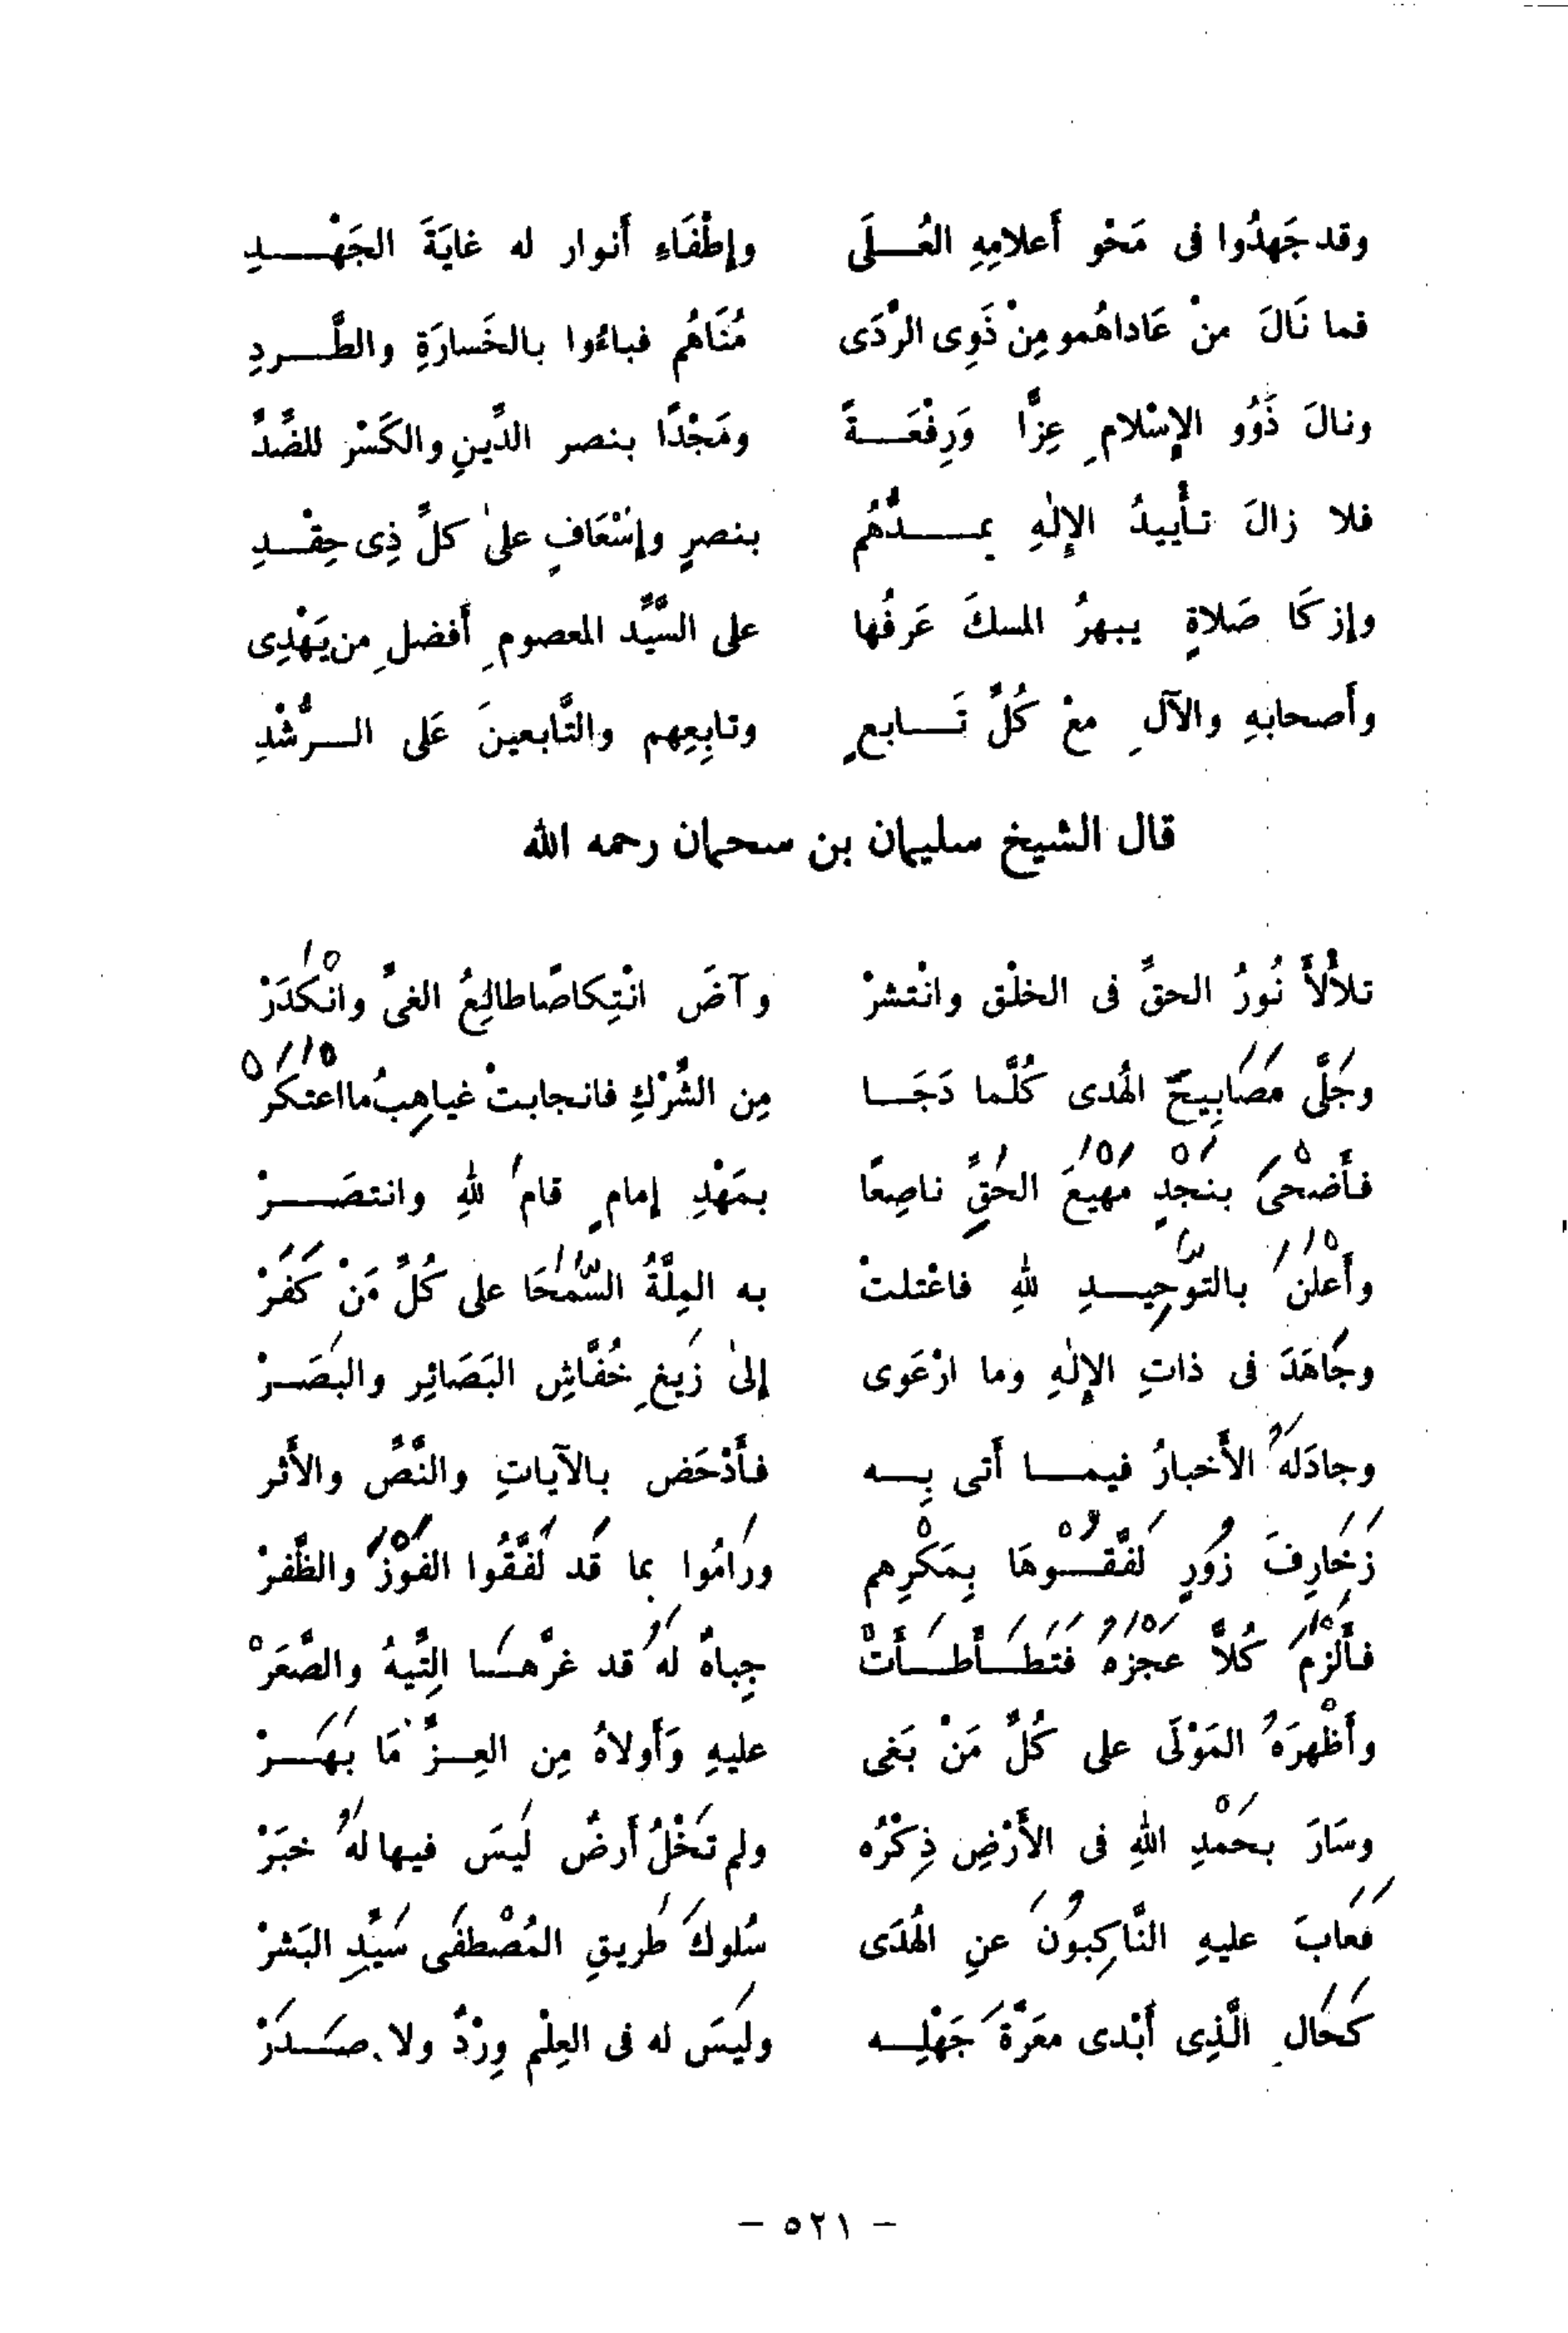 وقد جَهدُوا فى مَحْو أَعلامِهِ العُـــلَى وإطْفَاءِ أَنوار له غايَةَ الجَهْــــدِ
فما نَالَ منْ عَاداهُمو مِنْ ذَوِى الرَّدَى مُنَاهُم فباءُوا بالخَسارَةِ والطَّـــردِ
ونالَ ذَوُو الإِسْلامِ عِزًّا وَرِفْعَـــةً ومَجْدًا بنصر الدِّينِ والكَسْر للضِّدِّ
فلا زالَ تأْييدُ الإِلٰهِ يمـــدُّهُم بنصرٍ وإسْعَافٍ علىٰ كلِّ ذِى حِقْــدِ
وإزكَا صَلاةٍ يبهرُ المسكَ عَرفُها على السَّيِّد المعصومِ أَفضلِ من يَهْدِى
وأَصحابهِ والآلِ معْ كُلِّ تَـــابعٍ وتابِعِهم والتَّابعينَ عَلى الـــرُّشْدِ
قال الشيخ سليمان بن سحمان رحمه الله
تلأْلأَ نُورُ الحقِّ فى الخلْق وانْتشرْ وآضَ انْتِكاصًا طالِعُ الغىِّ وانْكَدَرْ
وجَلَّى مَصَابِيحَ الهُدى كُلَّما دَجَــا مِن الشِّرْكِ فانجابتْ غياهِبُ ما اعتكرْ
فأَضْحىَ بنجدٍ مَهْيعَ الحَقِّ ناصِعًا بمَهْدِ إمامٍ قامَ للهِ وانتصَـــرْ
وأَعْلنَ بالتوّحِيـــدِ للهِ فاعْتلتْ به المِلَّةُ السَّمْحَا على كُلِّ مَنْ كَفَرْ
وجَاهَدَ فى ذاتِ الإِلٰهِ وما ارْعَوى إلىٰ زَيغِ خُفَّاشِ البَصَائِر والبَصَــرْ
وجادَلَهُ الأَخبارُ فيمـــا أَتى بِـــه فأَدْحَض بالآياتِ والنَّصِّ والأَثر
زَخَارِفَ زُورٍ لَفَّقُــوْهَا بِمَكْرِهم ورَامُوا بما قَد لَفَّقُوا الفَوْزَ والظَّفرْ
فأَلْزَمَ كُلاًّ عَجْزَهُ فَتَطَــأْطــأَتْ جِباهٌ لهُ قد غرَّهــَا التِّيهُ والصَّعَرْ
وأَظْهرَهُ المَوْلَى على كُلِّ مَنْ بَغى عليهِ وَأَولاهُ مِن العِــزِّ مَا بَهَــرْ
وسَارَ بحَمْدِ اللهِ فى الأَرْضِ ذِكْرُه ولم تَخْلُ أَرضٌ لَيسَ فيها لَهُ خبَرْ
فَعَابَ عليهِ النَّاكِبُونَ عنِ الهُدَى سُلوكَ طَريقِ المُصْطفَى سَيِّدِ البَشرْ
كَحَالِ الَّذِى أَبْدى معَرَّةَ جَهْلِـــه وليَسَ له فى العِلْمِ وِرْدٌ ولا صَــدَرْ
– ٥٢١ –